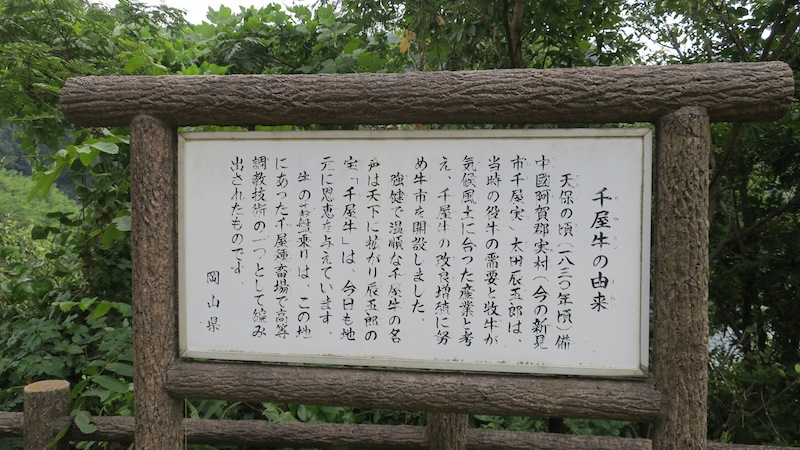 千屋牛の由来
天保の頃（一八三〇年頃）備
中國阿賀郡実村（今の新見
市千屋実）太田辰五郎は、
当時の役牛の需要と牧牛が
気候風土に合った産業と考
え、千屋牛の改良増殖に努
め牛市を開設しました。
強健で温順な千屋牛の名
声は天下に拡がり辰五郎の
宝「千屋牛」は、今日も地
元に恩恵を与えています。
牛の碁盤乗りは、この地
にあった千屋種畜場で高等
調教技術の一つとして編み
出されたものです。
岡山県